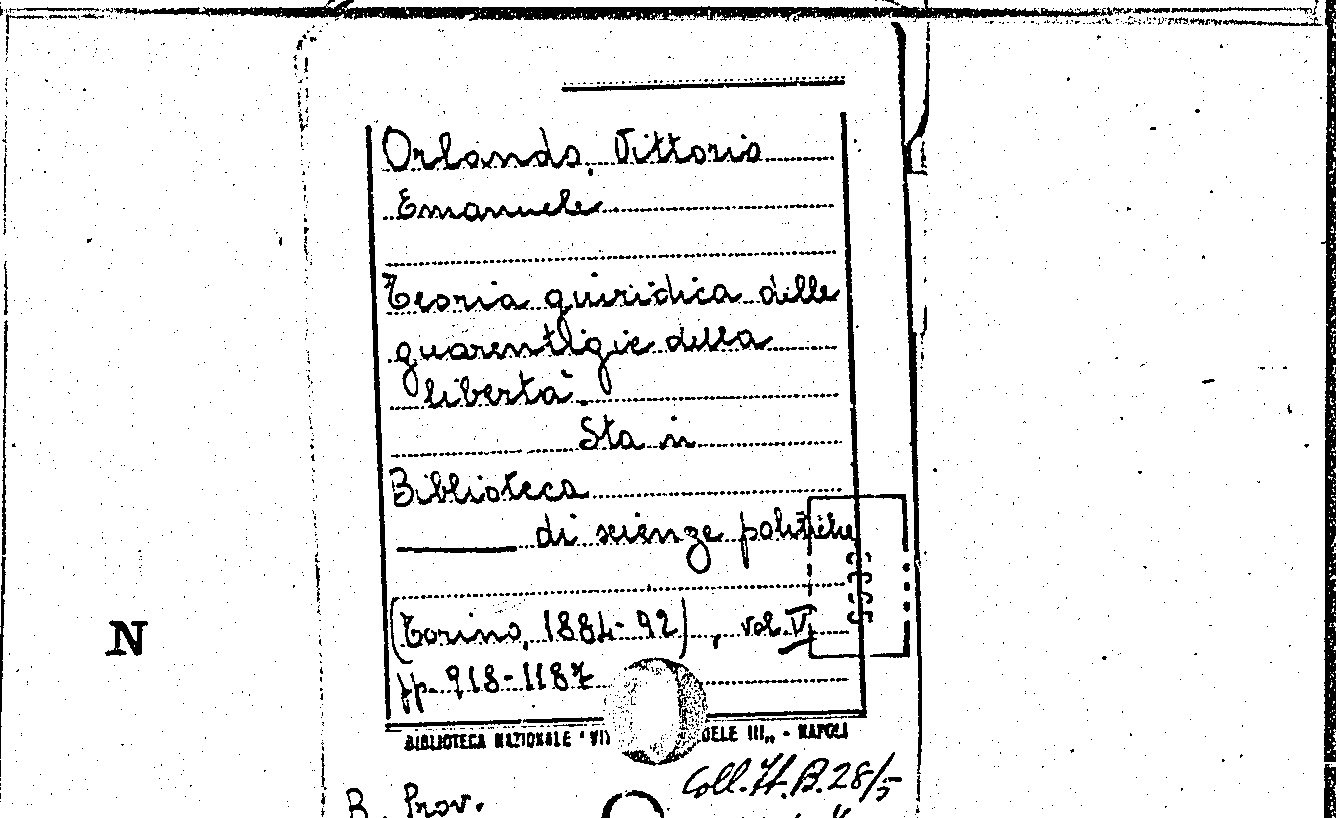 Orlando, Vittorio
Emanuele
Teoria giuridica delle
guarentigie della
libertà.
Sta in
Biblioteca
di scienze politiche
(Torino, 1884-92), vol. V,
pp. 918-1187
BIBLIOTECA NAZIONALE "VI ELE III„ - NAPOLI
Coll. H. B. 28/5
B. Prov.
N